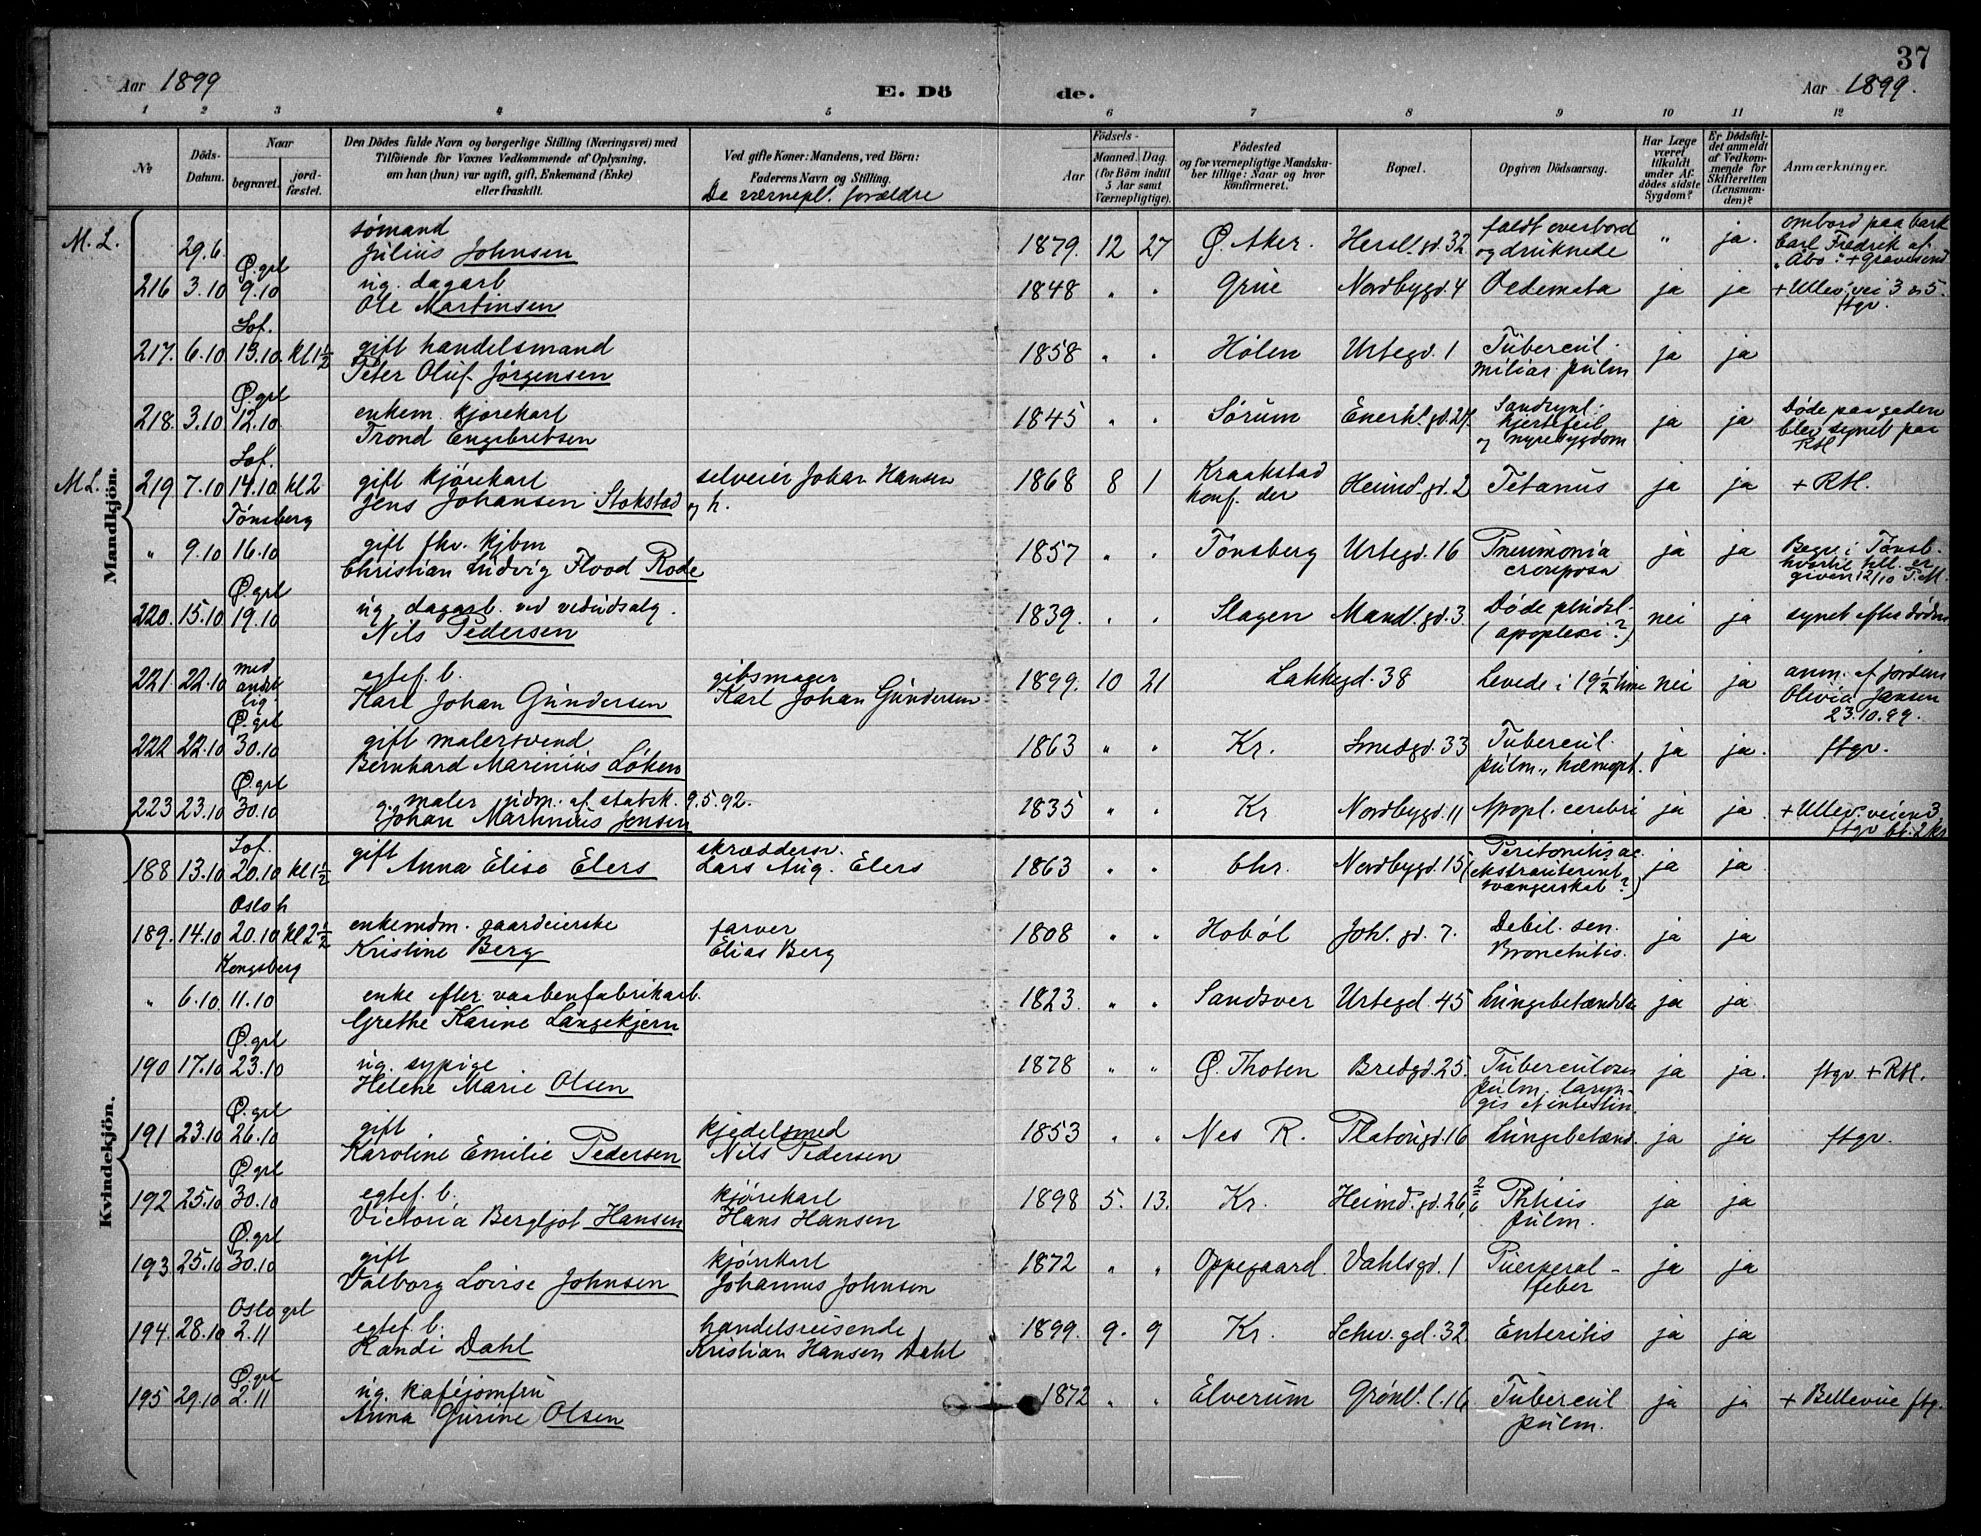 37
Aar 1899 E. Dö de. Aar 1899.
1 2 3 4 5 6 7 8 9 10 11 12
No
Döds-Datum.
Naar
begravet.
jordfæstet.
Den Dödes fulde Navn og borgerlige Stilling (Næringsvei) med
Tilföiende for Voxnes Vedkommende af Oplysning,
om han (hun) var ugift, gift, Enkemand (Enke)
eller fraskilt.
Ved gifte Koner: Mandens, ved Börn:
Faderens Navn og Stilling.
De værnepl. forældre
Födsels-
Aar
Maaned. Dag.
(for Börn indtil
5 Aar samt
Værnepligtige).
Födested
og for værnepligtige Mandskaber tillige: Naar og hvor
konfirmeret.
Bopæl.
Opgiven Dödsaarsag.
Har Læge
været
tilkaldt
under Afdödes sidste
Sygdom?
Er Dödsfaldet anmeldt
af Vedkommende for
Skifteretten
(Lensmanden)?
Anmærkninger.
Mandkjön.
M. L. 29.6. sømand
Julius Johnsen 1879. 12 27 Ø. Aker. Hersl. gd. 32 faldt overbord
og druknede " ja. ombord paa bark
Carl Fredrik af
"Åbo". + Gravesend
216 3.10 Ø. grl
9.10 ug. dagarb
Ole Martinsen 1848 " " Grue Nordbygd. 4 Oedemata ja ja + Ullev. vei 3 5.
ftgv.
217. 6.10 Sof.
13.10 kl 1½ gift handelsmand
Peter Oluf Jørgensen 1858 " " Hølen Urtegd. 1 Tubercul.
miliar. pulm ja ja
218. 3.10 Ø. grl
12.10 enkem. kjørekarl
Trond Engebretsen 1845 " " Sørum Enerh. gd. 27. Sandsynl.
hjertefeil
og nyresygdom ja ja Døde paa gaden
blev synet paa
Rhl
M.L. 219 7.10 Sof.
14.10 kl 2 gift kjørekarl
Jens Johansen Stokstad selveier Johan Hansen
og h. 1868 8 1 Kraakstad
konf. der Heimd. gd. 2 Tetanus ja ja + RH.
" 9.10 Tønsberg
16.10 gift fhv. kjbm
Christian Ludvig Flood Rode 1857 " " Tønsberg Urtegd. 16 Pneumonia
crouposa ja ja Begr. i Tønsb.
hvortil till. er
given 12/10 T. M.
220. 15.10 Ø. grl
19.10 ug. dagarb. ved vedudsalg.
Nils Pedersen 1839. " " Slagen Mandl. gd. 3 Døde pludsl.
(apoplexi?) nei ja synet efter døden
221. 22.10 med
andet
lig egtef. b.
Karl Johan Gundersen gibsmager
Karl Johan Gundersen 1899. 10 21 Lakkegd. 38 Levede i 19½ time nei ja anm. af jordem
Olivia Jansen
23.10.99.
222 22.10 Ø. grl
30.10 gift malersvend
Bernhard Marinius Løken 1863 " " Kr. Smedgd. 33 Tubercul.
pulm., hæmopt. ja ja. ftgv.
223 23.10 Ø. grl
30.10 g. maler udm. af statsk. 9.5.92.
Johan Martinius Jensen 1835 " " Kr Nordbygd. 11 Apopl. cerebri ja ja. + Ullev. veien 3
ftgv bt. 2 kr
Kvindekjön.
188 13.10 Sof.
20.10 kl 1½ gift Anna Elise Elers skræddersv.
Lars Aug. Elers 1863 " " Chr. Nordbygd. 15 Peritonitis ac.
(ekstrauterint
svangerskab?) ja ja
189. 14.10 Oslo h
20.10 kl 2½ enkemdm. gaardeierske
Kristine Berg farver
Elias Berg 1808 " " Hobøl Joh. gd. 7. Debil. sen.
Bronchitis. ja ja
" 6.10. Kongsberg
11.10 enke efter vaabenfabrikarb.
Grethe Karine Langekjern 1823 " " Sandsver Urtegd 45 Lungebetændelse ja ja
190 17.10 Ø. grl
23.10 ug. sypige
Helene Marie Olsen 1878 " " Ø. Thoten Bredgd. 25. Tuberculosis
pulm. laryngis et intestin. ja ja. ftgv. + RH.
191 23.10 Ø. grl
26.10 gift
Karoline Emilie Pedersen kjedelsmed
Nils Pedersen 1853 " " Nes R. Platougd. 16 Lungebetænd. ja ja ftgv.
192 25.10 Ø. grl
30.10 egtef. b.
Victoria Bergljot Hansen kjørekarl
Hans Hansen 1898 5. 13. Kr. Heimd. gd. 26, Phtisis
pulm. ja ja
193 25.10 Ø. grl
30.10 gift
Valborg Lovise Johnsen kjørekarl
Johannes Johnsen 1872 " " Oppegaard. Vahlsgd. 1 Puerperal-
feber ja ja
194. 28.10 Oslo grl
2.11 egtef. b.
Randi Dahl handelsreisende
Kristian Hansen Dahl 1899. 9. 9 Kr. Schw. gd. 32 Enteritis ja ja
195 29.10 Ø. grl
2.11 ug. kaféjomfru
Anna Gurine Olsen 1872 " " Elverum Grønl. l. 16 Tubercul
pulm. ja ja + Bellevue ftg.